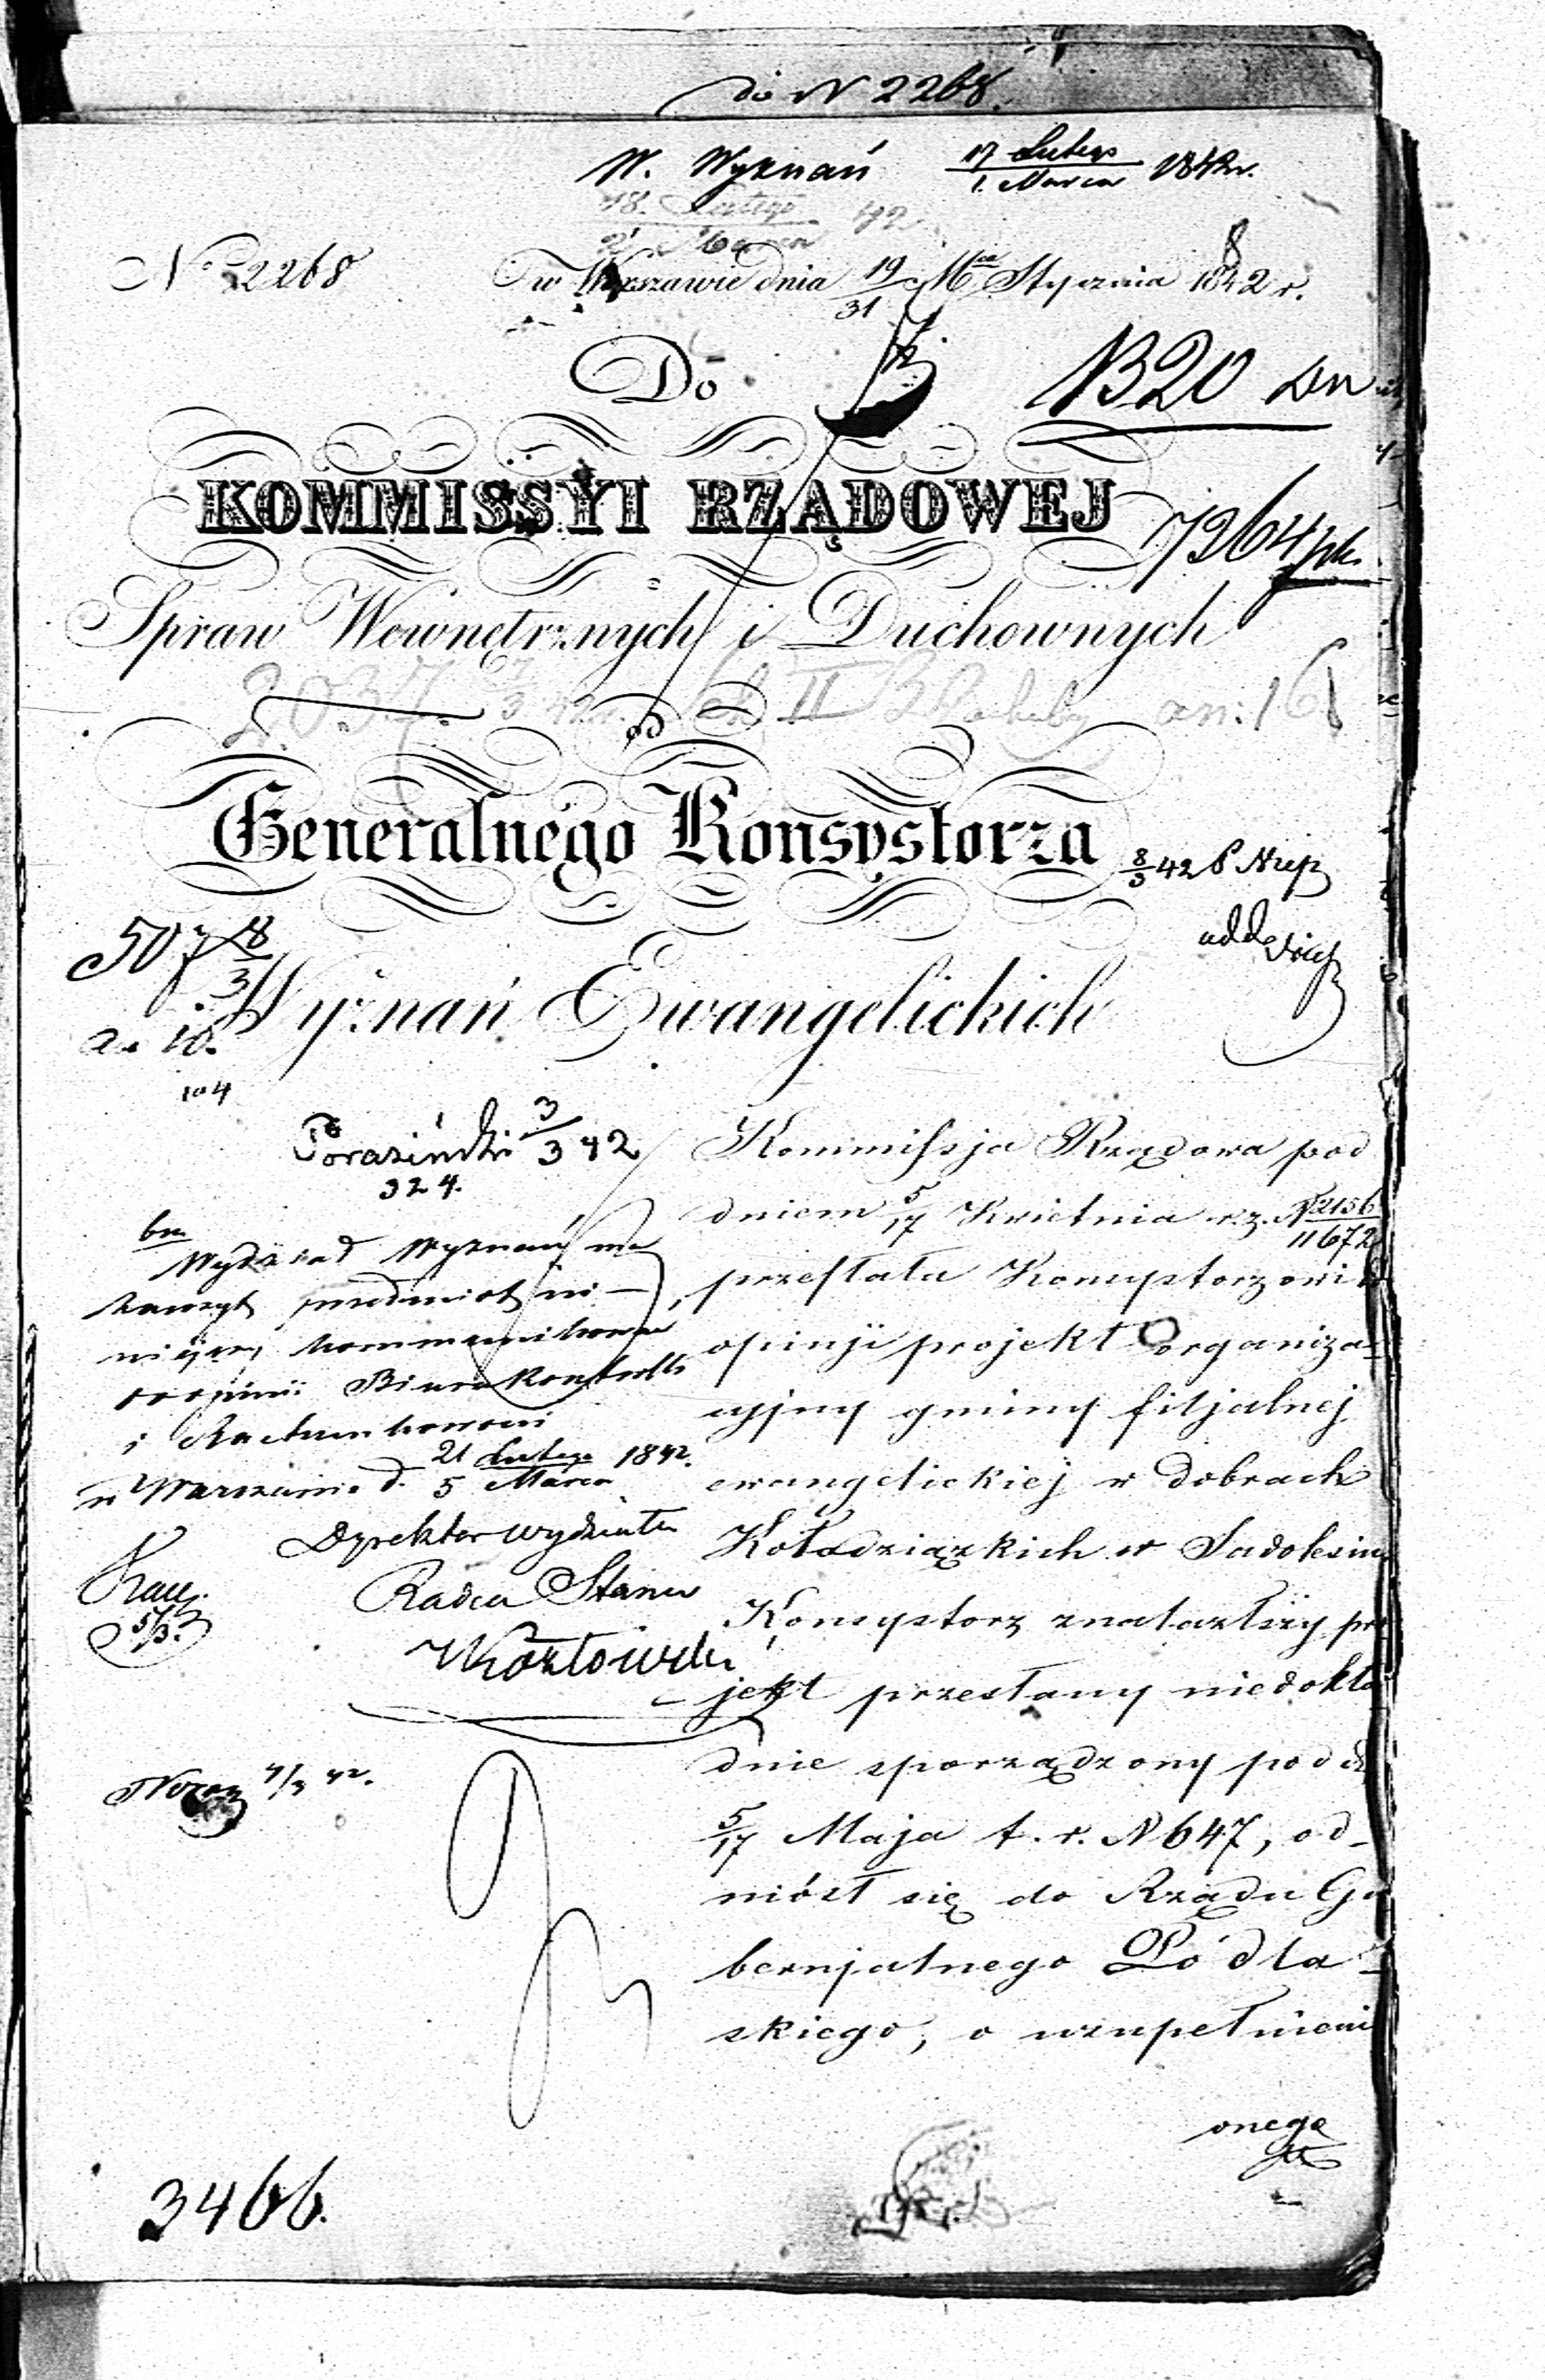 do N 2268.
W. Wyznań 17 Lutego / 1. Marca 1842r.
18. Lutego
No 2268 w Warszawie dnia 19/31 Mca Stycznia 1842 r.
8
Do
1320
KOMMISSYI RZĄDOWEJ
7264
Spraw Wewnętrznych i Duchownych
2037 II an: 161
od
Generalnego Konsystorza
8/3 42
507 8/3
Wyznań Ewangelickich
a. 10.
104
Poraziński 3/3 42
324.
Wydział Wyznań ma
zaszczyt przedmiot ni-
niejszy kommunikować
do opinii Biura Kontrolli
i Rachunkowości
w Warszawie d. 21 Lutego / 5 Marca 1842.
Dyrektor Wydziału
Radca Stanu
Kozłowski
5/3.
4/3 42.
3466.
Kommissja Rządowa pod
dniem 5/17 Kwietnia r.z. N 2156/11672
przesłała Konsystorzowi do
opinji projekt organiza-
cyjny gminy filjalnej
ewangelickiej w dobrach
Kołodziązkich w Sadolesiu
Konsystorz znalazłszy pro
jekt przesłany niedokła
dnie sporządzony pod d.
5/17 Maja t.r. N 647, od-
niósł się do Rządu Gu
bernjalnego Podla-
skiego, o uzupełnieni
onego